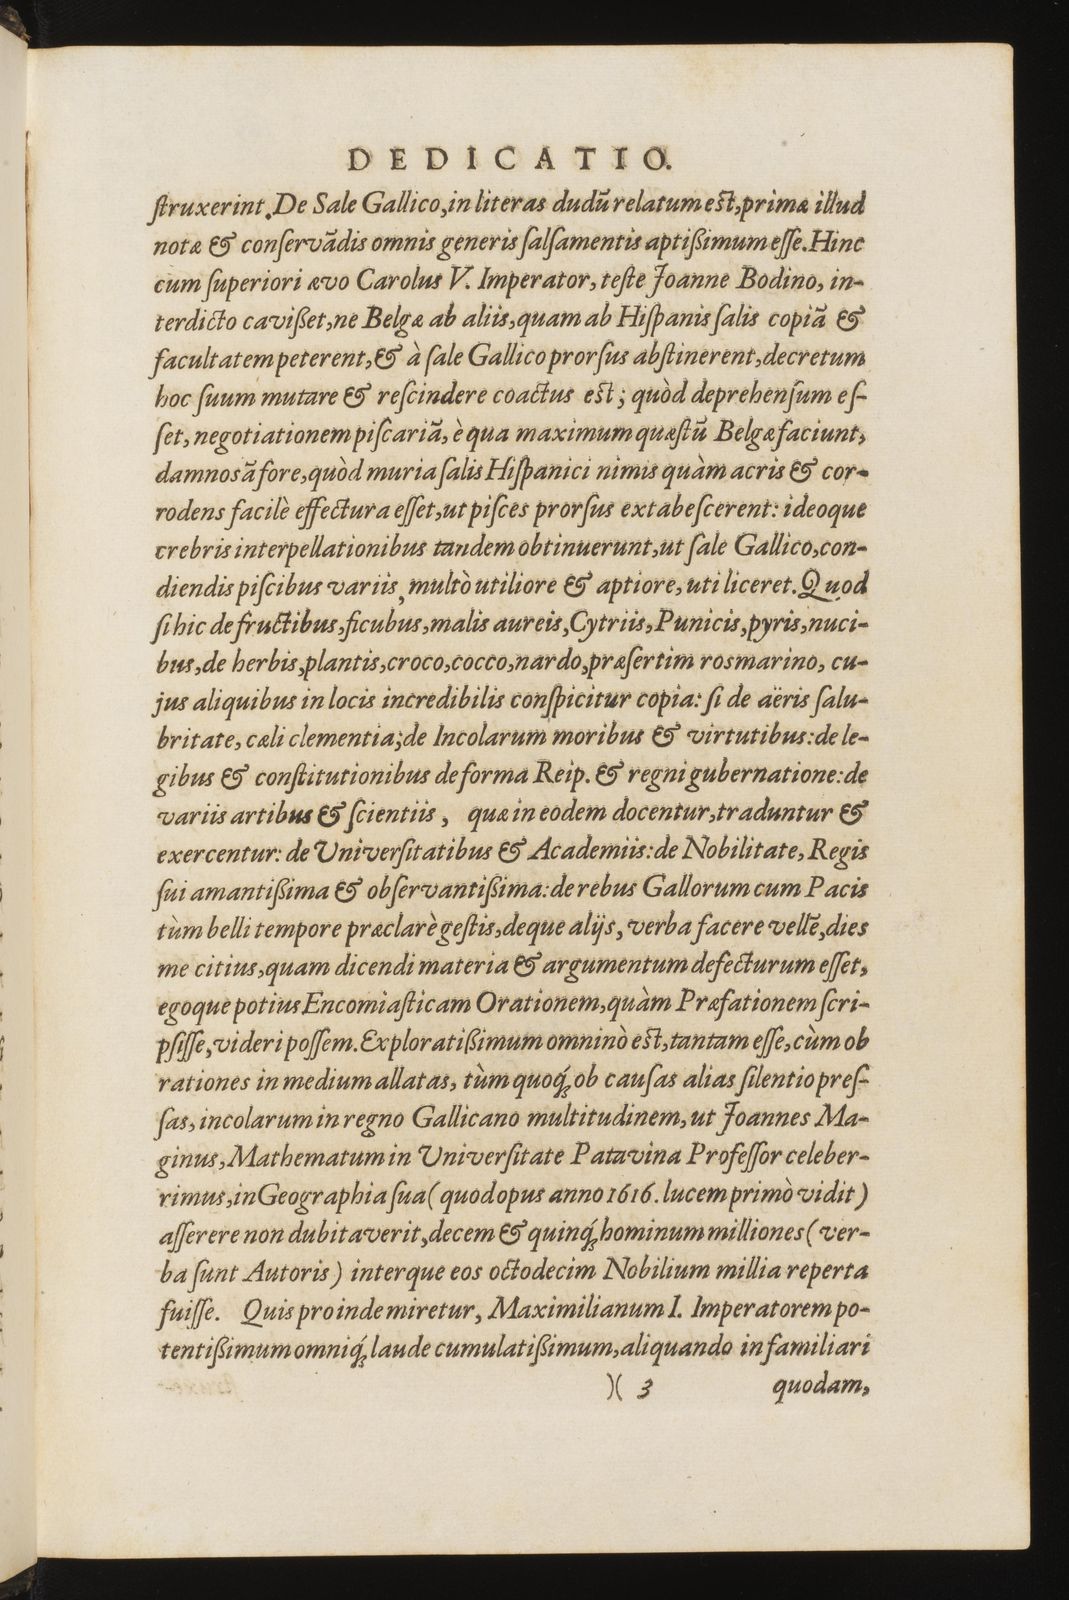 DEDICATIO.
ſtruxerint. De Sale Gallico, in literas dudū relatum est, primæ illud
notæ & conſervādis omnis generis ſalſamentis aptißimum eſſe. Hinc
cum ſuperiori ævo Carolus V. Imperator, teſte Joanne Bodino, in-
terdicto cavißet, ne Belgæ ab aliis, quam ab Hiſpanis ſalis copiā &
facultatem peterent, & à ſale Gallico prorſus abſtinerent, decretum
hoc ſuum mutare & reſcindere coactus est; quòd deprehenſum eſ-
ſet, negotiationem piſcariā, è qua maximum quæſtū Belgæ faciunt,
damnosā fore, quòd muria ſalis Hiſpanici nimis quàm acris & cor-
rodens facilè effectura eſſet, ut piſces prorſus extabeſcerent: ideoque
crebris interpellationibus tandem obtinuerunt, ut ſale Gallico, con-
diendis piſcibus variis, multò utiliore & aptiore, uti liceret. Quod
ſi hic de fructibus, ficubus, malis aureis, Cytriis, Punicis, pyris, nuci-
bus, de herbis, plantis, croco, cocco, nardo, præſertim rosmarino, cu-
jus aliquibus in locis incredibilis conſpicitur copia: ſi de aëris ſalu-
britate, cæli clementia; de Incolarum moribus & virtutibus: de le-
gibus & conſtitutionibus de forma Reip. & regni gubernatione: de
variis artibus & ſcientiis, quæ in eodem docentur, traduntur &
exercentur: de Univerſitatibus & Academiis: de Nobilitate, Regis
ſui amantißima & obſervantißima: de rebus Gallorum cum Pacis
tùm belli tempore præclarè geſtis, deque alijs, verba facere vellē, dies
me citius, quam dicendi materia & argumentum defecturum eſſet,
egoque potius Encomiaſticam Orationem, quàm Præfationem ſcri-
pſiſſe, videri poſſem. Exploratißimum omninò est, tantam eſſe, cùm ob
rationes in medium allatas, tùm quoq́; ob cauſas alias ſilentio preſ-
ſas, incolarum in regno Gallicano multitudinem, ut Joannes Ma-
ginus, Mathematum in Univerſitate Patavina Profeſſor celeber-
rimus, in Geographia ſua (quod opus anno 1616. lucem primò vidit)
aſſerere non dubitaverit, decem & quinq́; hominum milliones (ver-
ba ſunt Autoris) interque eos octodecim Nobilium millia reperta
fuiſſe. Quis proinde miretur, Maximilianum I. Imperatorem po-
tentißimum omniq́; laude cumulatißimum, aliquando in familiari
)( 3 quodam,